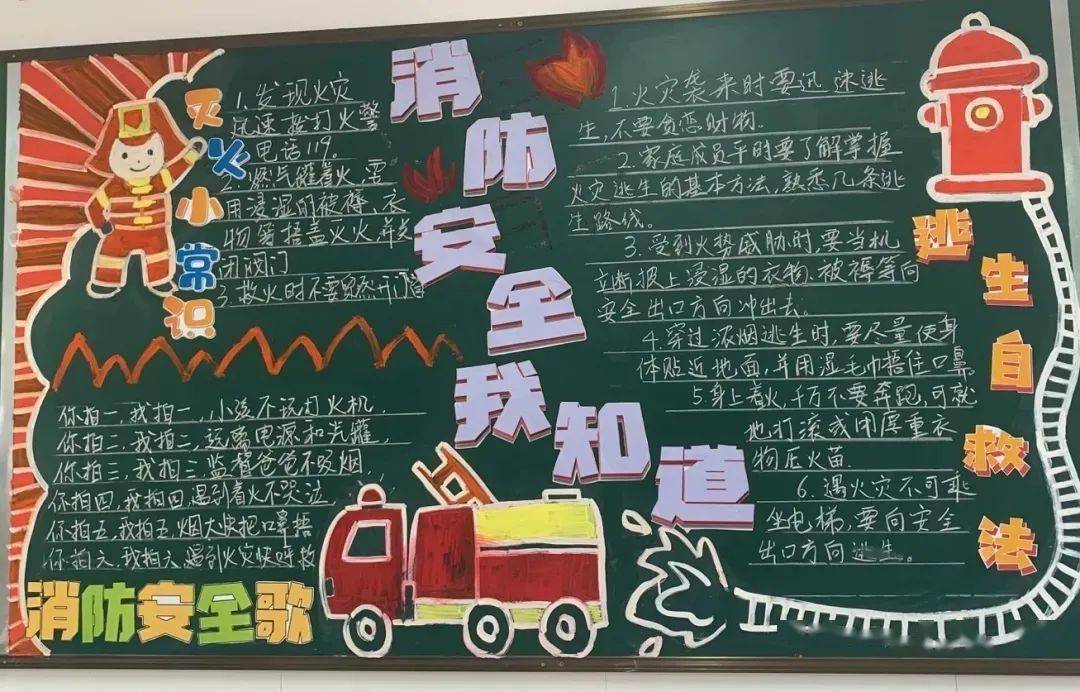 消防安全我知道
灭火小常识
1.发现火灾
迅速拨打火警
电话119
2.燃气罐着火,需
用浸湿的被褥、衣
物等捂盖灭火,并关
闭阀门
3.救火时不要贸然开门窗
你拍一,我拍一,小孩不玩打火机,
你拍二,我拍二,远离电源和气罐,
你拍三,我拍三监督爸爸不吸烟,
你拍四,我拍四,遇到着火不哭泣,
你拍五,我拍五,烟大快把口鼻捂
你拍六,我拍六,遇到火灾快呼救
消防安全歌
1.火灾袭来时要迅速逃
生,不要贪恋财物。
2.家庭成员平时要了解掌握
火灾逃生的基本方法,熟悉几条逃
生路线。
3.受到火势威胁时,要当机
立断披上浸湿的衣物、被褥等向
安全出口方向冲出去。
4.穿过浓烟逃生时,要尽量使身
体贴近地面,并用湿毛巾捂住口鼻。
5.身上着火,千万不要奔跑,可就
地打滚或用厚重衣
物压火苗.
6.遇火灾不可乘
坐电梯,要向安全
出口方向逃生。
逃生自救法